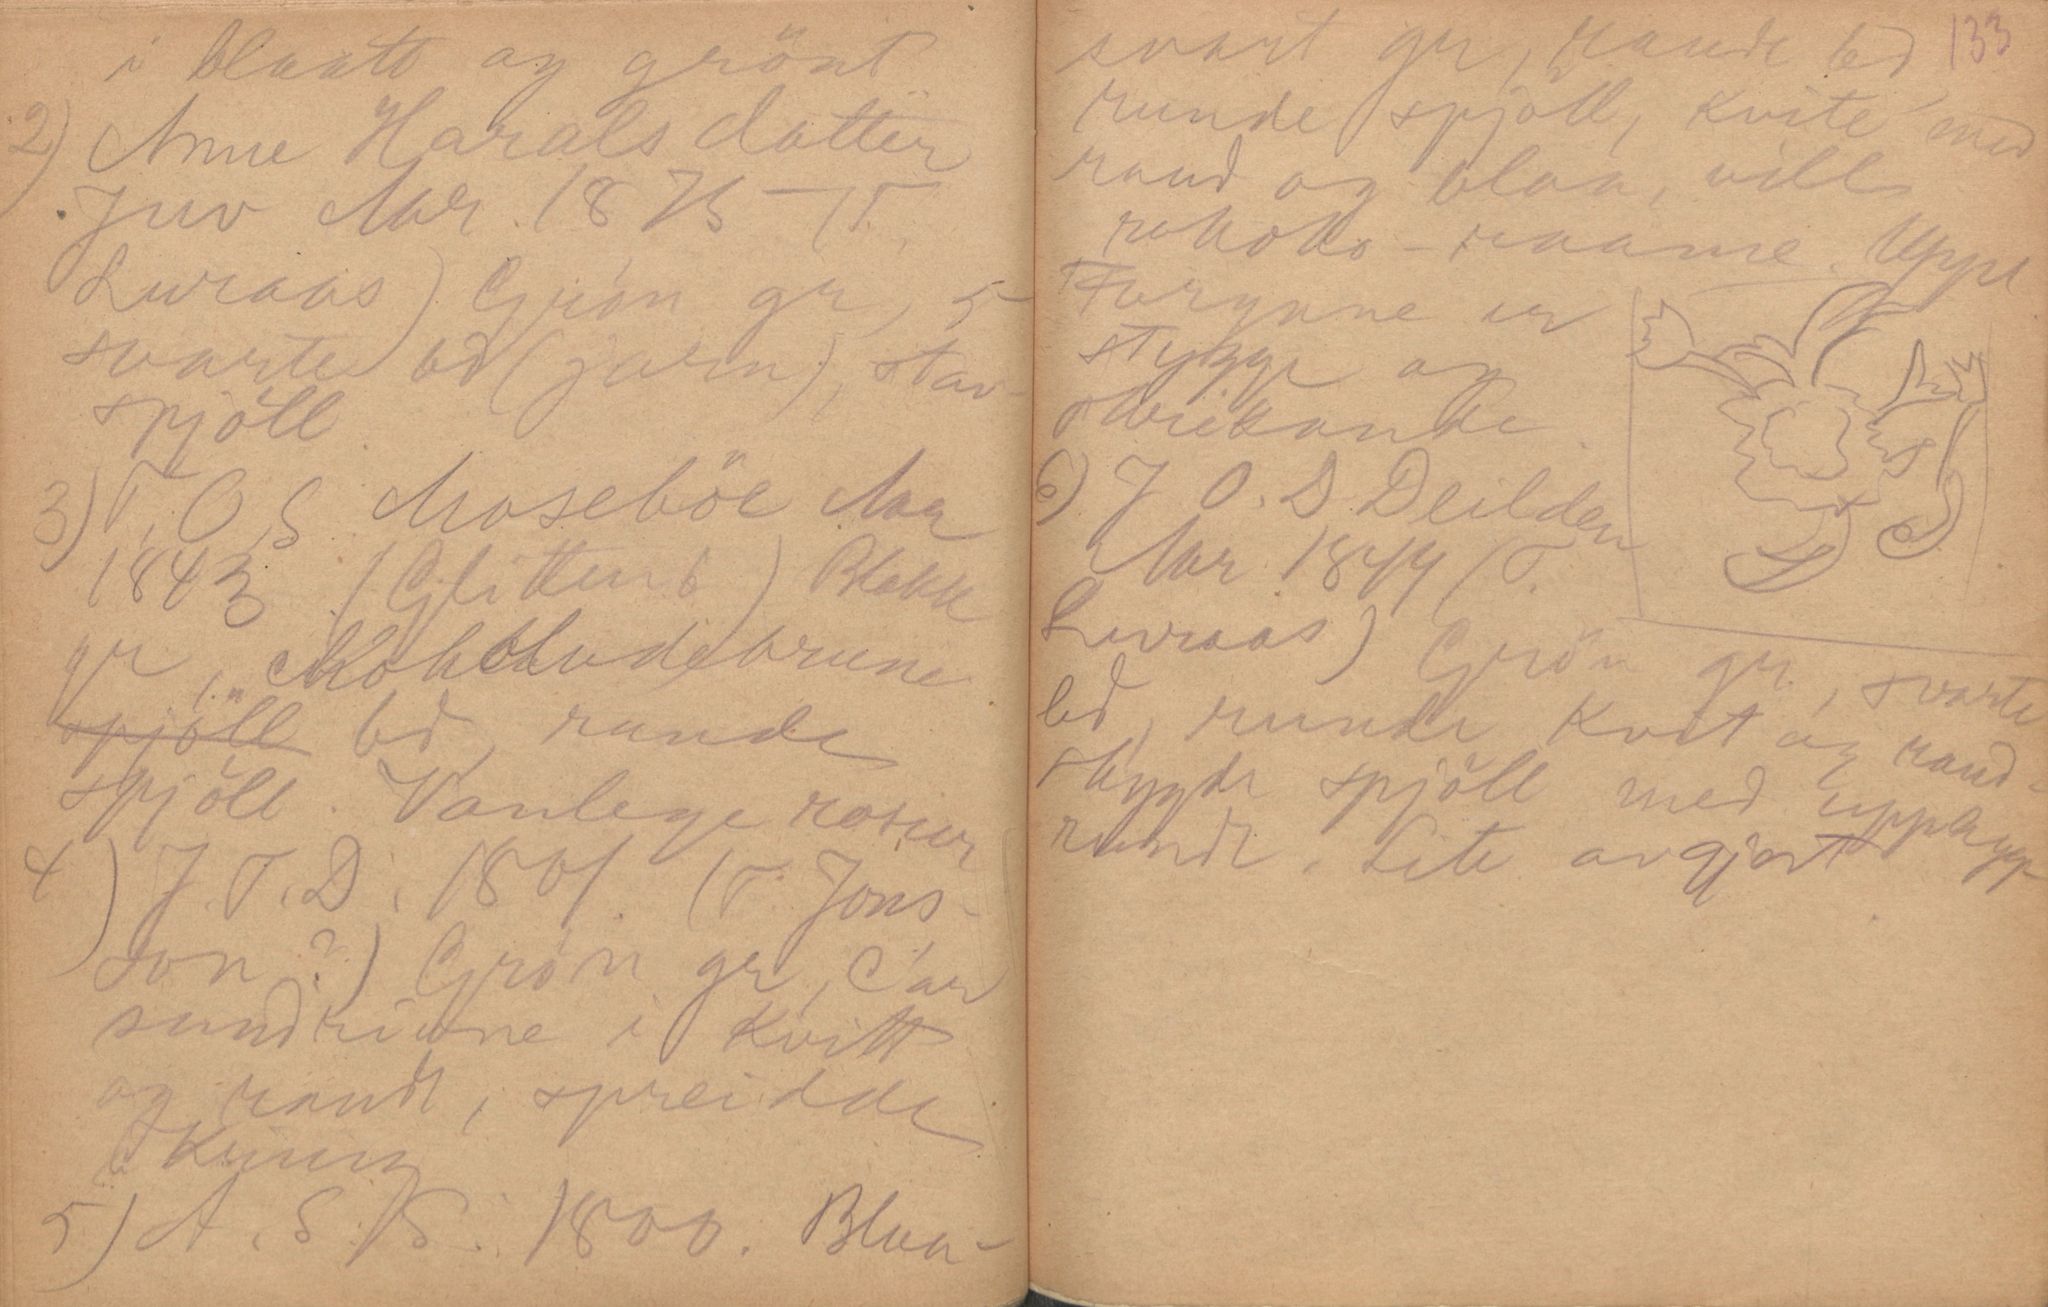 i blaatt og grönt
2) Anne Haralsdotter
Juv Aar 1875 (T.
Luraas) Grön gr, 5
svarte bd (jarn), stav-
spjöll
3) T. O. S Moseböe Aar
1843 (Glittenb) Blakk
gr, brune
spjöll bd, raude
spjöll. Vanlege rosur
4) J. T. D. 1801. (T. Jons-
son?) Grön gr, C'ar
sundrivne i kvitt
og raudt, spreidde
5) A. S. S. 1800. Blaa-
133
svart gr, raude bd,
runde spjöll, kvite med
raud og blaa, vill
rokoko-raame. Uppl
Fargane er
stygge og
skrikande.
6) J O. D Deilden
Aar 1849 (T.
Luraas) Grön gr, svarte
bd, runde kvit og raud-
skygde spjöll med
runde. Lite avgjort